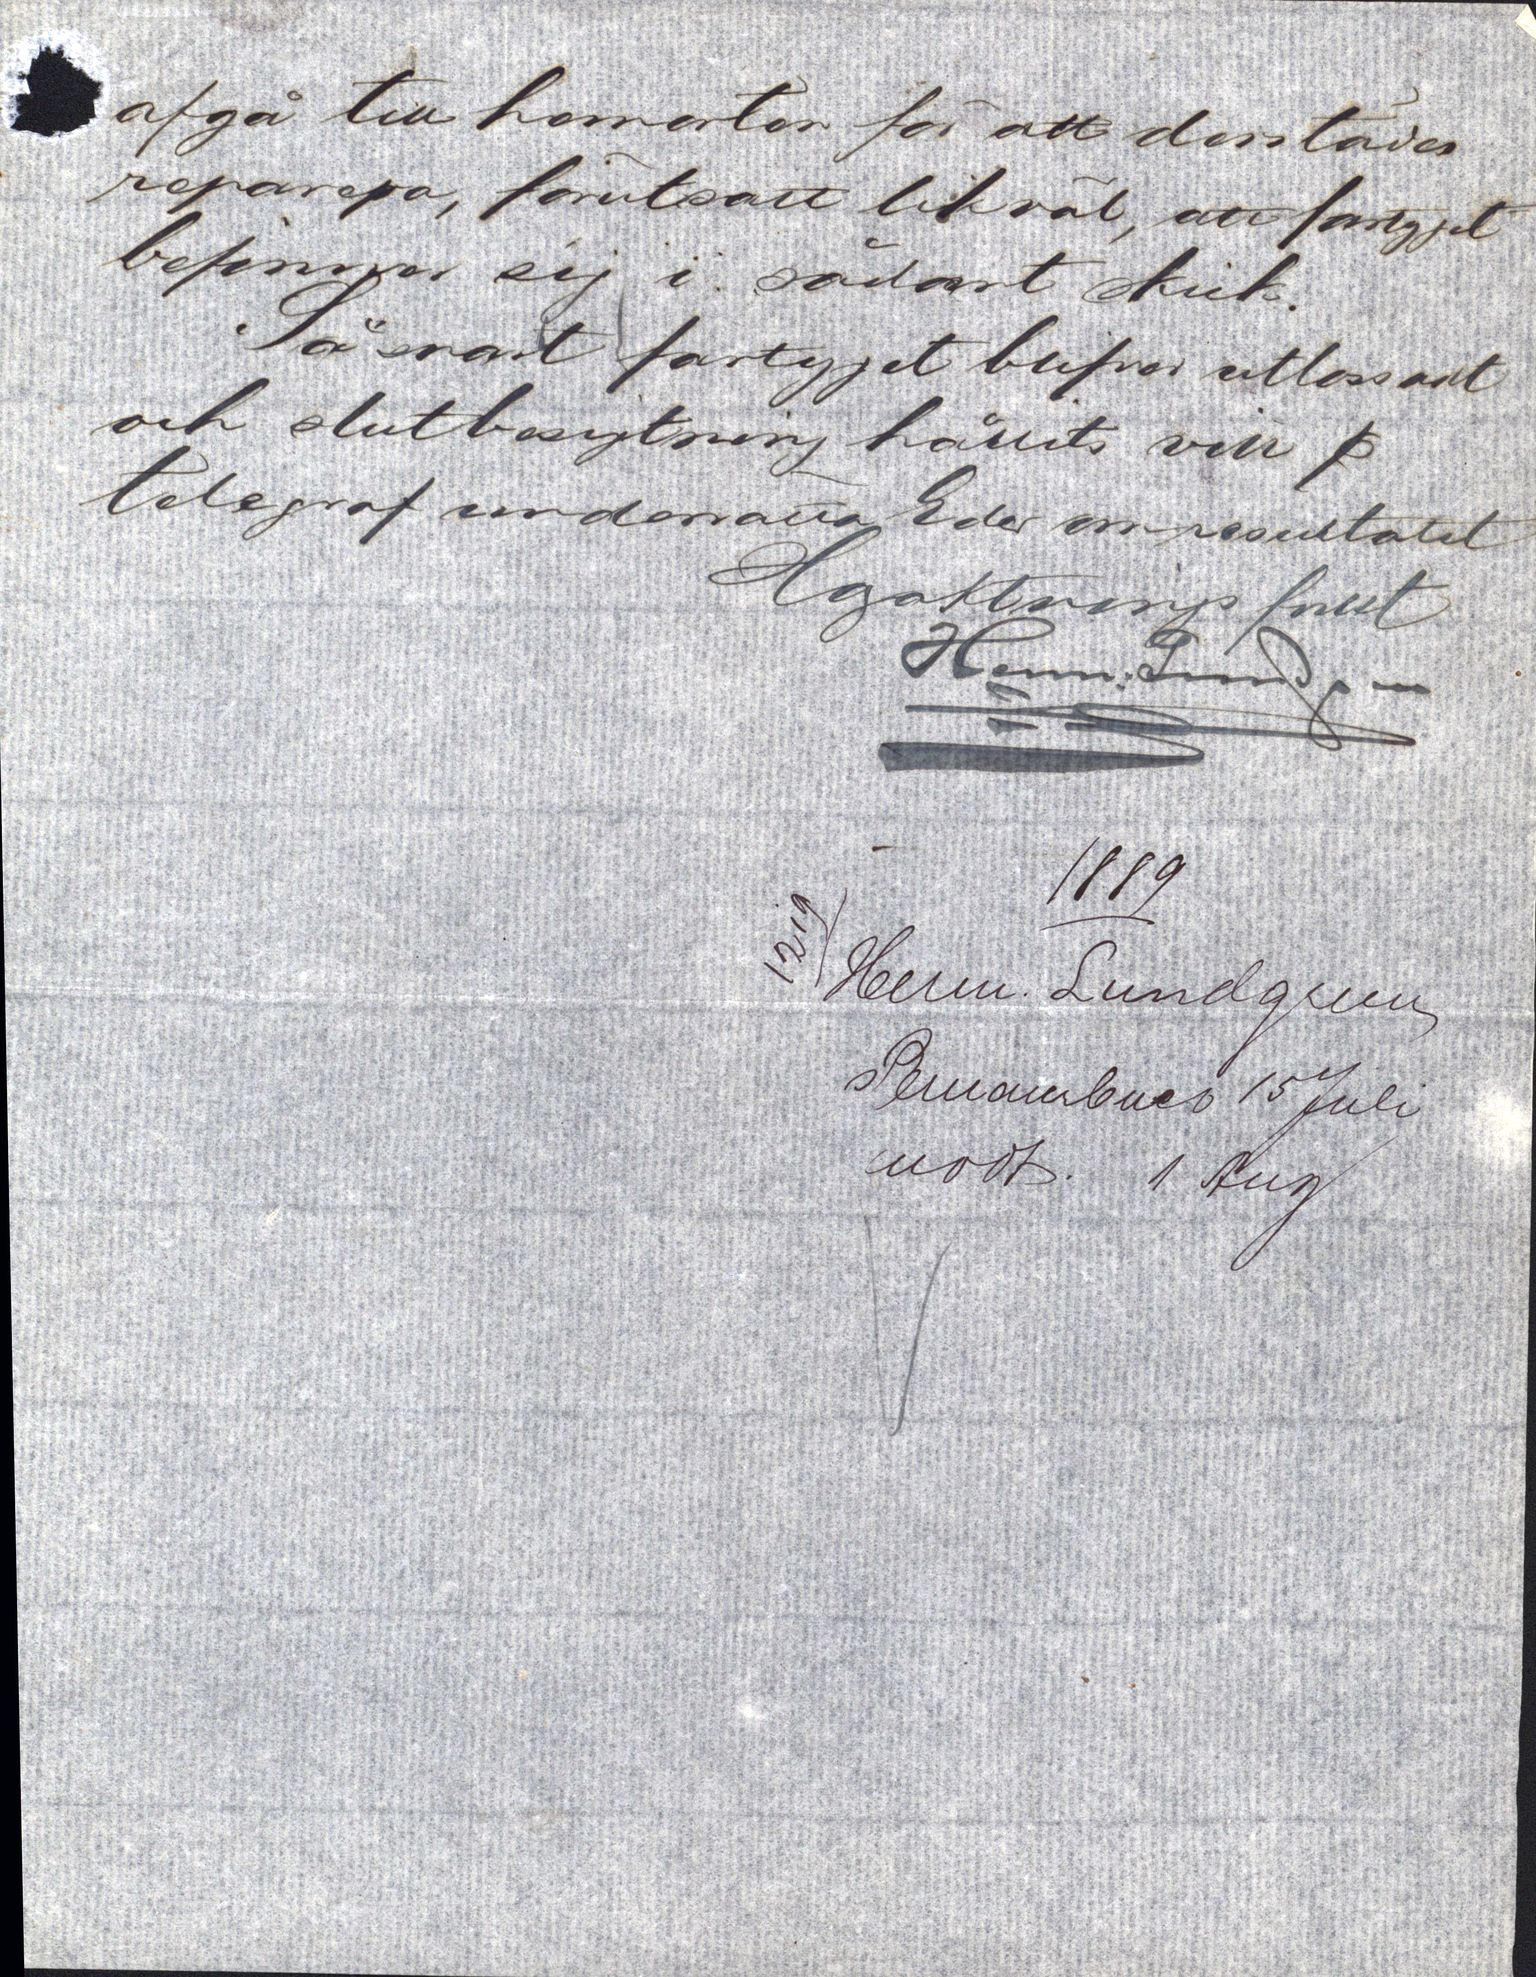 afgå till hemorten för att derstädes
reparera, förutsatt likväl, att fartyget
befinner sig i sådant skick.
Så snart fartyget blifver utlossadt
och slutbesigtning hållits vill pr
telegraf underrätta Eder om resultatet
Högaktningsfullt
Herm: Lundgren
1889
1219
Herm. Lundgren
Pernambuco 15 Juli
modt. 1 Aug